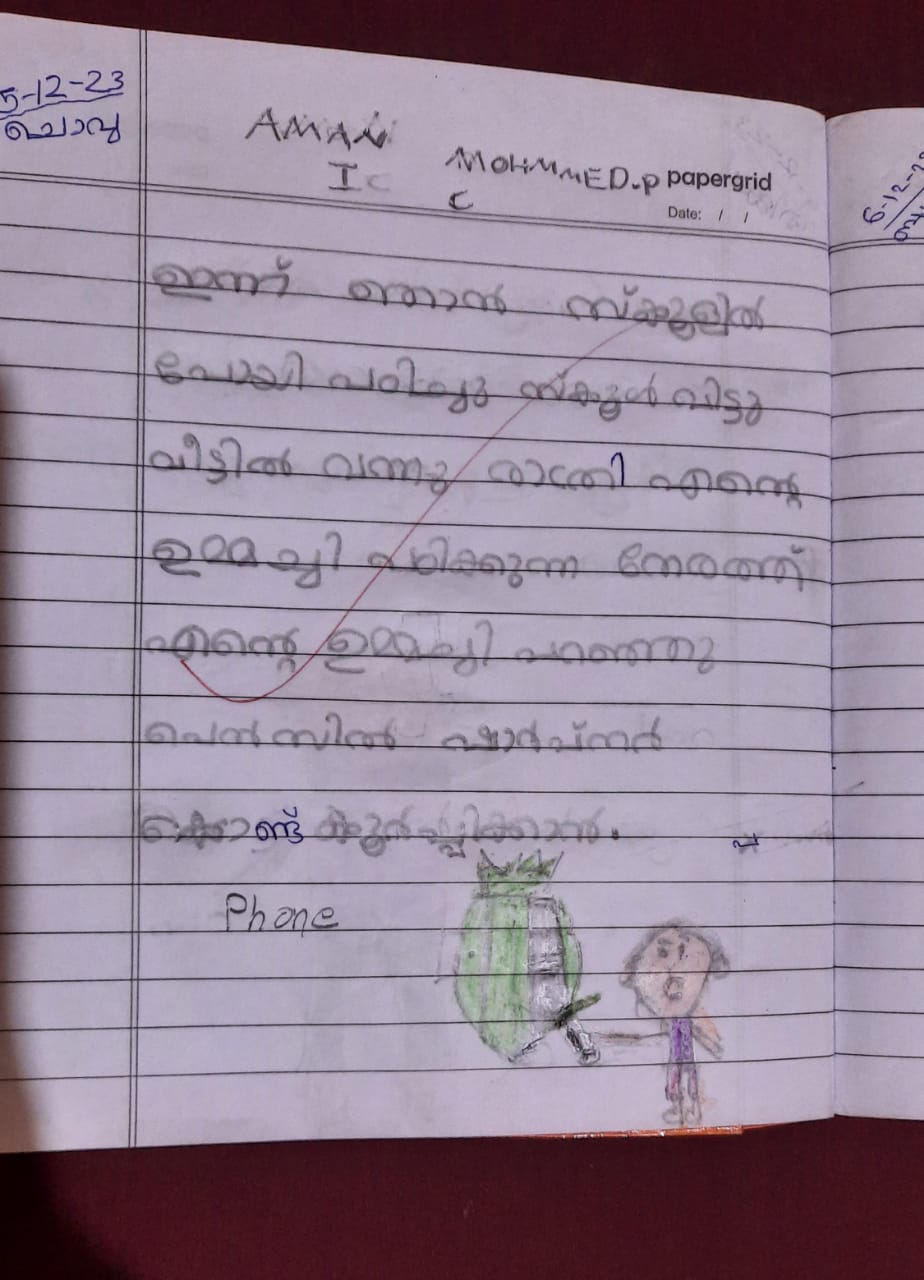 5-12-23
ചൊവ്വ
AMAN
MOHMMED.P
I C
C
papergrid
Date: / /
ഇന്ന് ഞാൻ സ്ക്കൂളിൽ
പോയി പഠിച്ചു സ്കൂൾ വിട്ടു
വീട്ടിൽ വന്നു രാത്രി എന്റെ
ഉമ്മച്ചി പഠിക്കുന്ന നേരത്ത്
എന്റെ ഉമ്മച്ചി പറഞ്ഞു
പെൻസിൽ ഷാർപ്നർ
കൊണ്ട് കൂർപ്പിക്കാൻ.
Phone
6-12-2